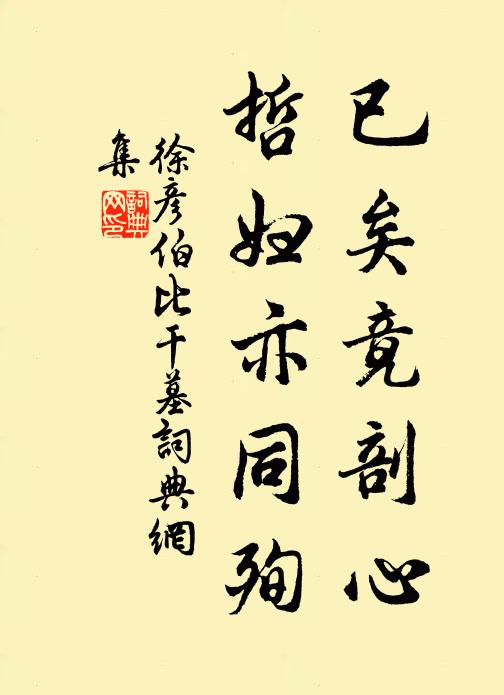 已矣竟剖心
哲妇亦同殉
徐彦伯比干墓詞典網
集
詞典网印